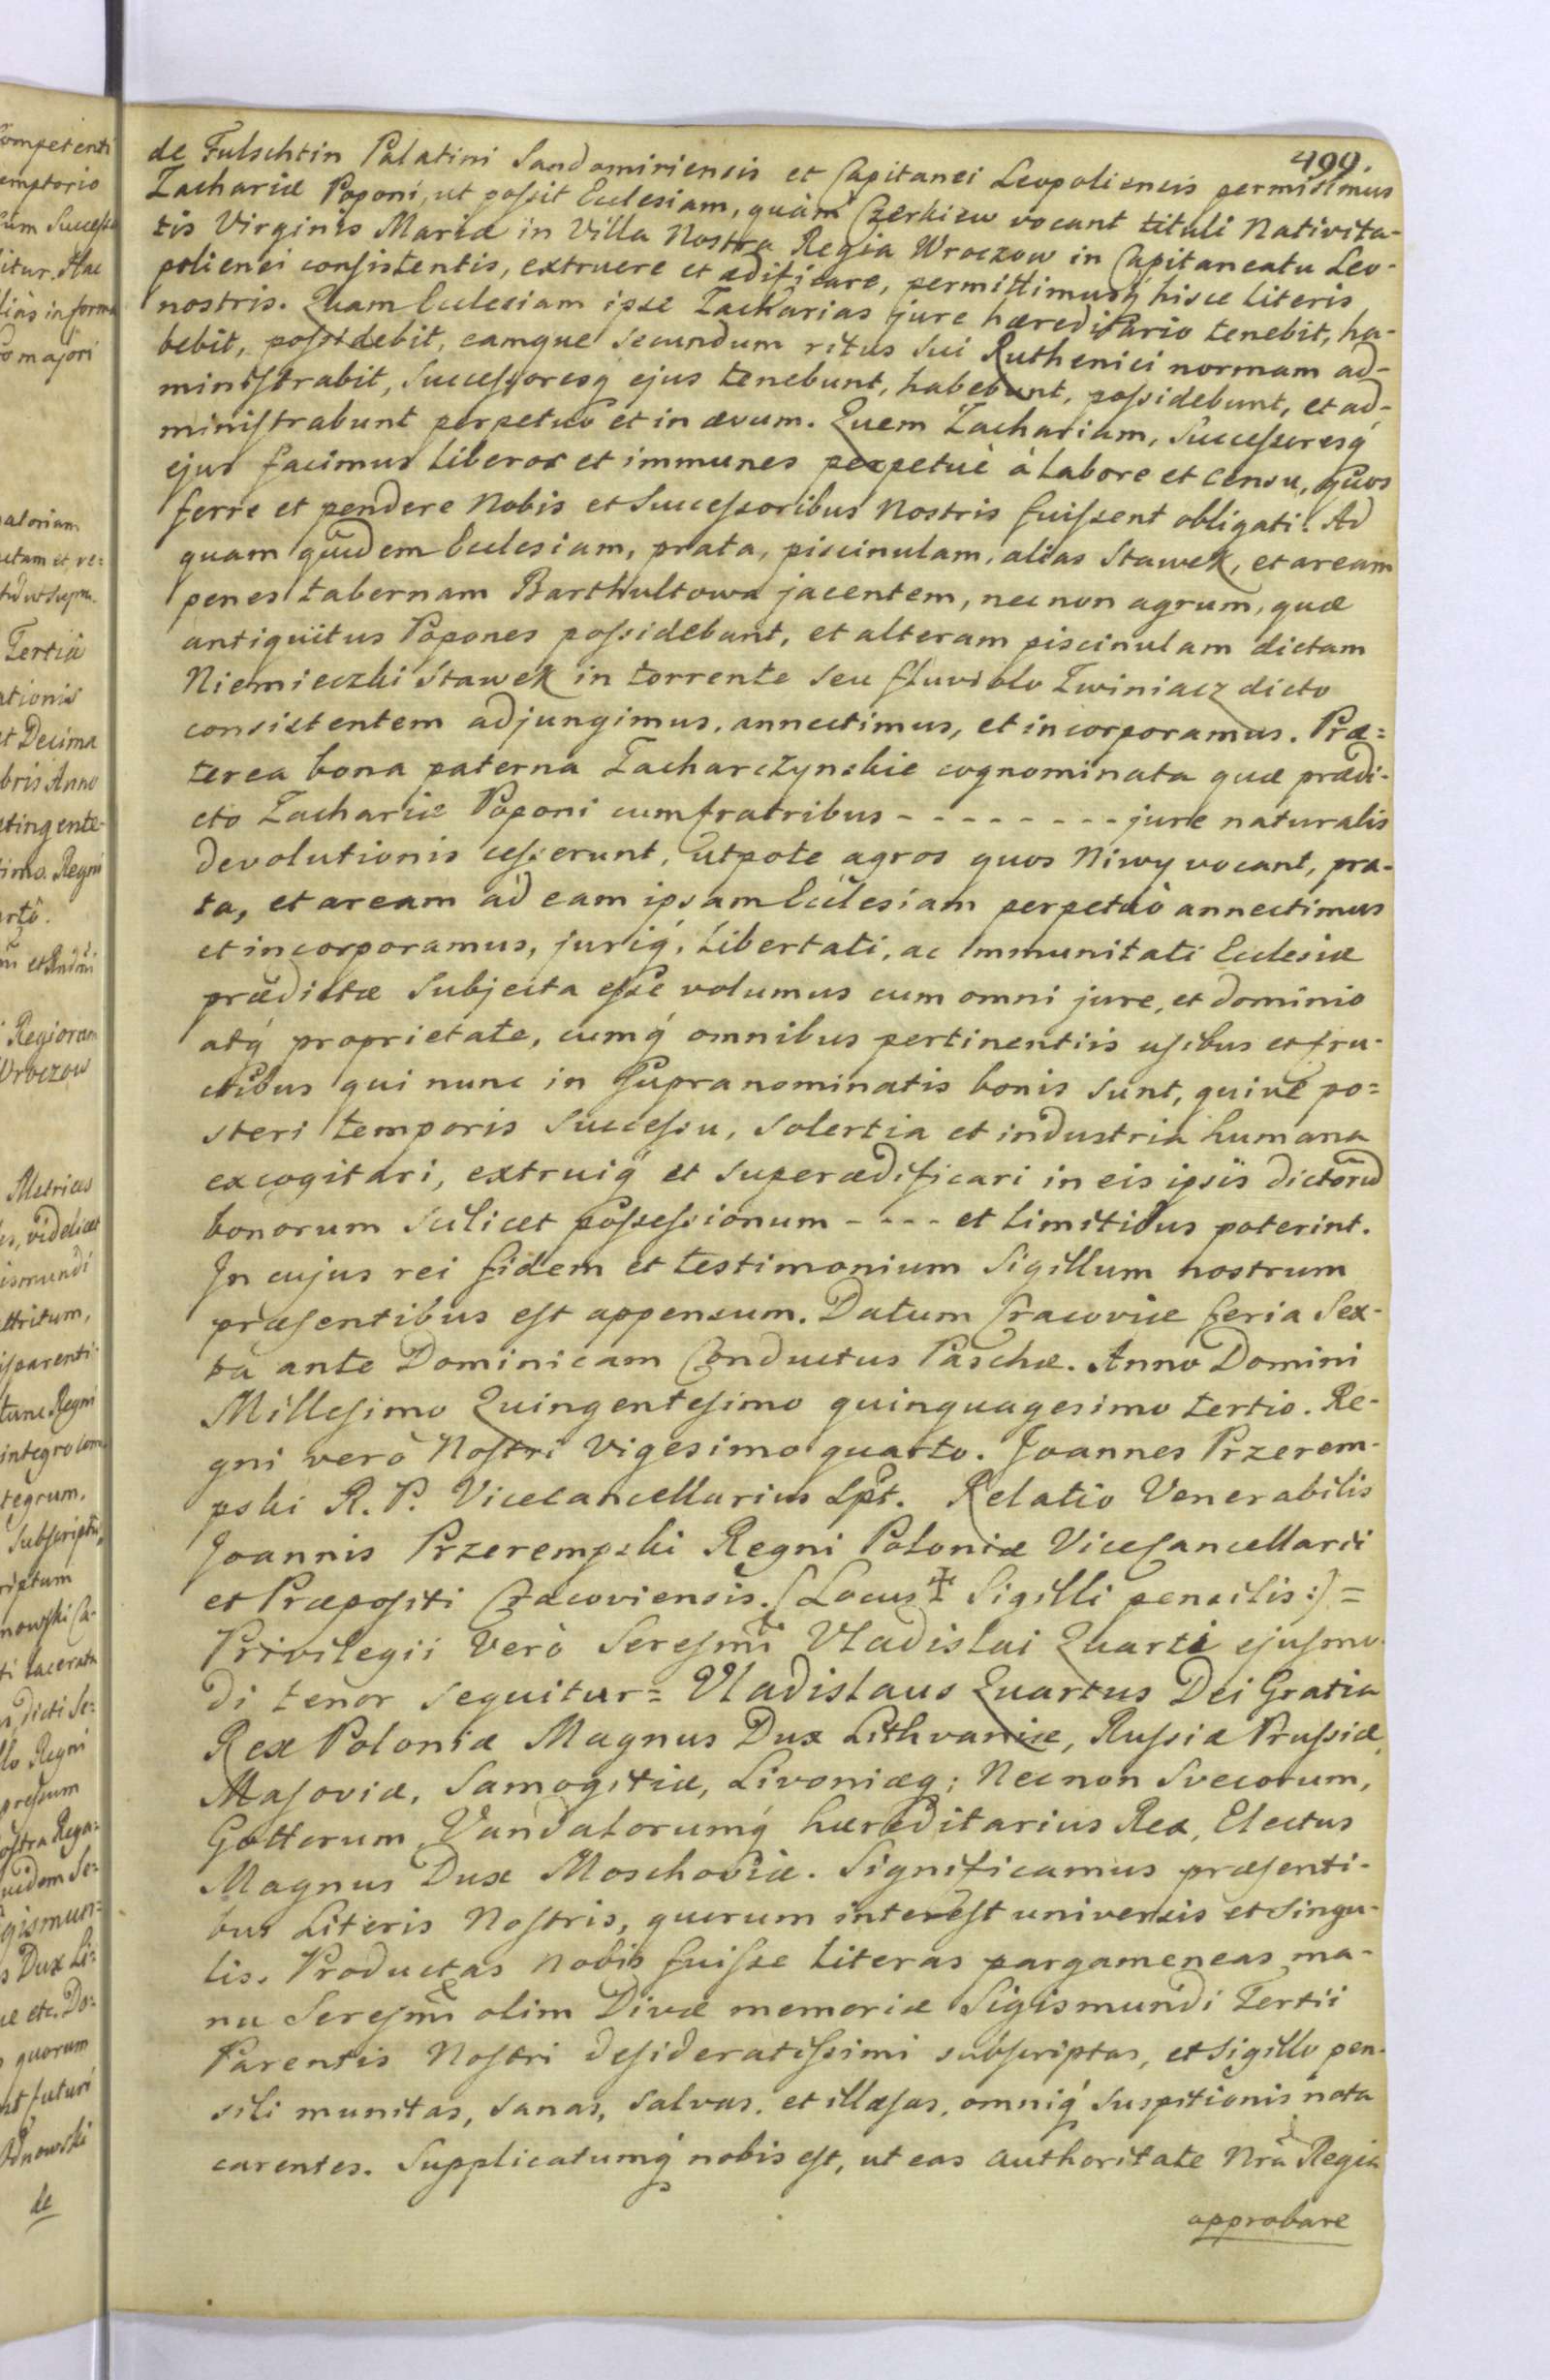 499.
de Fulschtin Palatini Sandomiriensis et Capitanei Leopoliensis permisimus
Zachariæ Poponi, ut possit Ecclesiam, quàm Czerkiew vocant tituli Nativita-
tis Virginis Mariæ in Villa Nostra Regia Wroczow in Capitaneatu Leo-
poliensi consistentis, extruere et ædificare, permittimusq́ hisce literis
nostris. Quam Ecclesiam ipse Zacharias jure hæreditario tenebit, ha-
bebit, possidebit, eamque secundum ritus sui Ruthenici normam ad-
ministrabit, Successoresq́ ejus tenebunt, habebunt, possidebunt, et ad-
ministrabunt perpetuò et in ævum. Quem Zachariam, Successoresq́
ejus facimus liberos et immunes perpetuè à labore et censu, quos
ferre et pendere Nobis et Successoribus Nostris fuissent obligati. Ad
quam quidem Ecclesiam, prata, piscinulam, alias Stawek, et aream
penes tabernam Barthultowa jacentem, necnon agrum, quæ
antiquitus Popones possidebant, et alteram piscinulam dictam
Niemieczki Stawek in torrente seu fluviolo Zwiniacz dicto
consistentem adjungimus, annectimus, et incorporamus. Præ=
terea bona paterna Zacharczynskie cognominata quæ prædi-
cto Zachariæ Poponi cum fratribus - - - - - - - - jure naturalis
devolutionis cesserunt, utpote agros quos Niwy vocant, pra-
ta, et aream ad eam ipsam Ecclesiam perpetuò annectimus
et incorporamus, juriq́, libertati, ac immunitati Ecclesiæ
prædictæ Subjecta esse volumus cum omni jure, et dominio
atq́ proprietate, cumq́ omnibus pertinentiis usibus et fru-
ctibus qui nunc in supranominatis bonis sunt, quive po=
steri temporis Successu, solertia et industria humana
excogitari, extruiq́ et superædificari in eis ipsis dictorũ
bonorum scilicet possessionum - - - - et limitibus poterint.
In cujus rei fidem et testimonium Sigillum nostrum
præsentibus est appensum. Datum Cracoviæ feria Sex-
ta ante Dominicam Conductus Paschæ. Anno Domini
Millesimo Quingentesimo quinquagesimo tertio. Re-
gni verò Nostri Vigesimo quarto. Joannes Przerem-
pski R. P. Vicecancellarius Spt. Relatio Venerabilis
Joannis Przerempski Regni Poloniæ Vicecancellarii
et Præpositi Cracoviensis. (Locus ✝ Sigilli pensilis:) =
Privilegii Verò Seresmĩ Vladislai Quarti ejusmo-
di tenor sequitur= Vladislaus Quartus Dei Gratia
Rex Poloniæ Magnus Dux Lithvaniæ, Russiæ Prussiæ,
Masoviæ, Samogitiæ, Livoniæq; Necnon Svecorum,
Gottorum Vandalorumq́ hæreditarius Rex, Electus
Magnus Dux Moschoviæ. Significamus præsenti-
bus Literis Nostris, quorum interest universis et singu-
lis. Productas nobis fuisse literas pargameneas ma-
nu Seresmĩ olim Divæ memoriæ Sigismundi Tertii
Parentis Nostri desideratissimi subscriptas, et sigillo pen-
sili munitas, sanas, salvas, et illæsas, omniq́ suspitionis nota
carentes. Supplicatumq́ nobis est, ut eas authoritate Nrã Regia
approbare